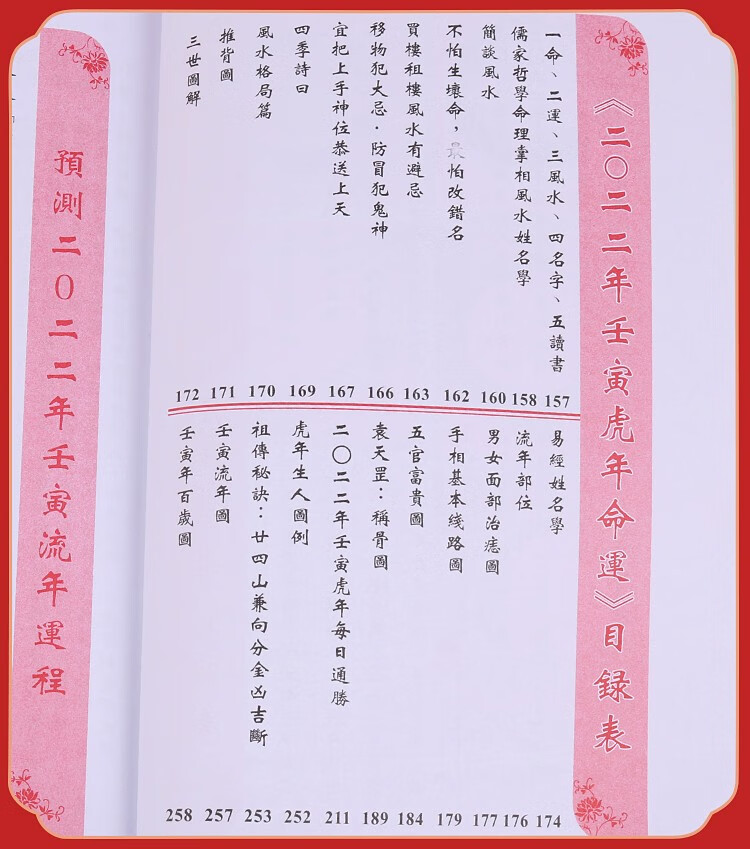 《二〇二二年壬寅虎年命運》目録表
一命、二運、三風水、四名字、五讀書
157
儒家哲學命理掌相風水姓名學
158
簡談風水
160
不怕生壞命，最怕改錯名
162
買樓租樓風水有避忌
163
移物犯大忌·防冒犯鬼神
166
宜把上手神位恭送上天
167
四季詩曰
169
風水格局篇
170
推背圖
171
三世圖解
172
易經姓名學
174
流年部位
176
男女面部治痣圖
177
手相基本綫路圖
179
五官富貴圖
184
袁天罡：稱骨圖
189
二〇二二年壬寅虎年每日通勝
211
虎年生人圖例
252
祖傳秘訣：廿四山兼向分金凶吉斷
253
壬寅流年圖
257
壬寅年百歲圖
258
預測二〇二二年壬寅流年運程